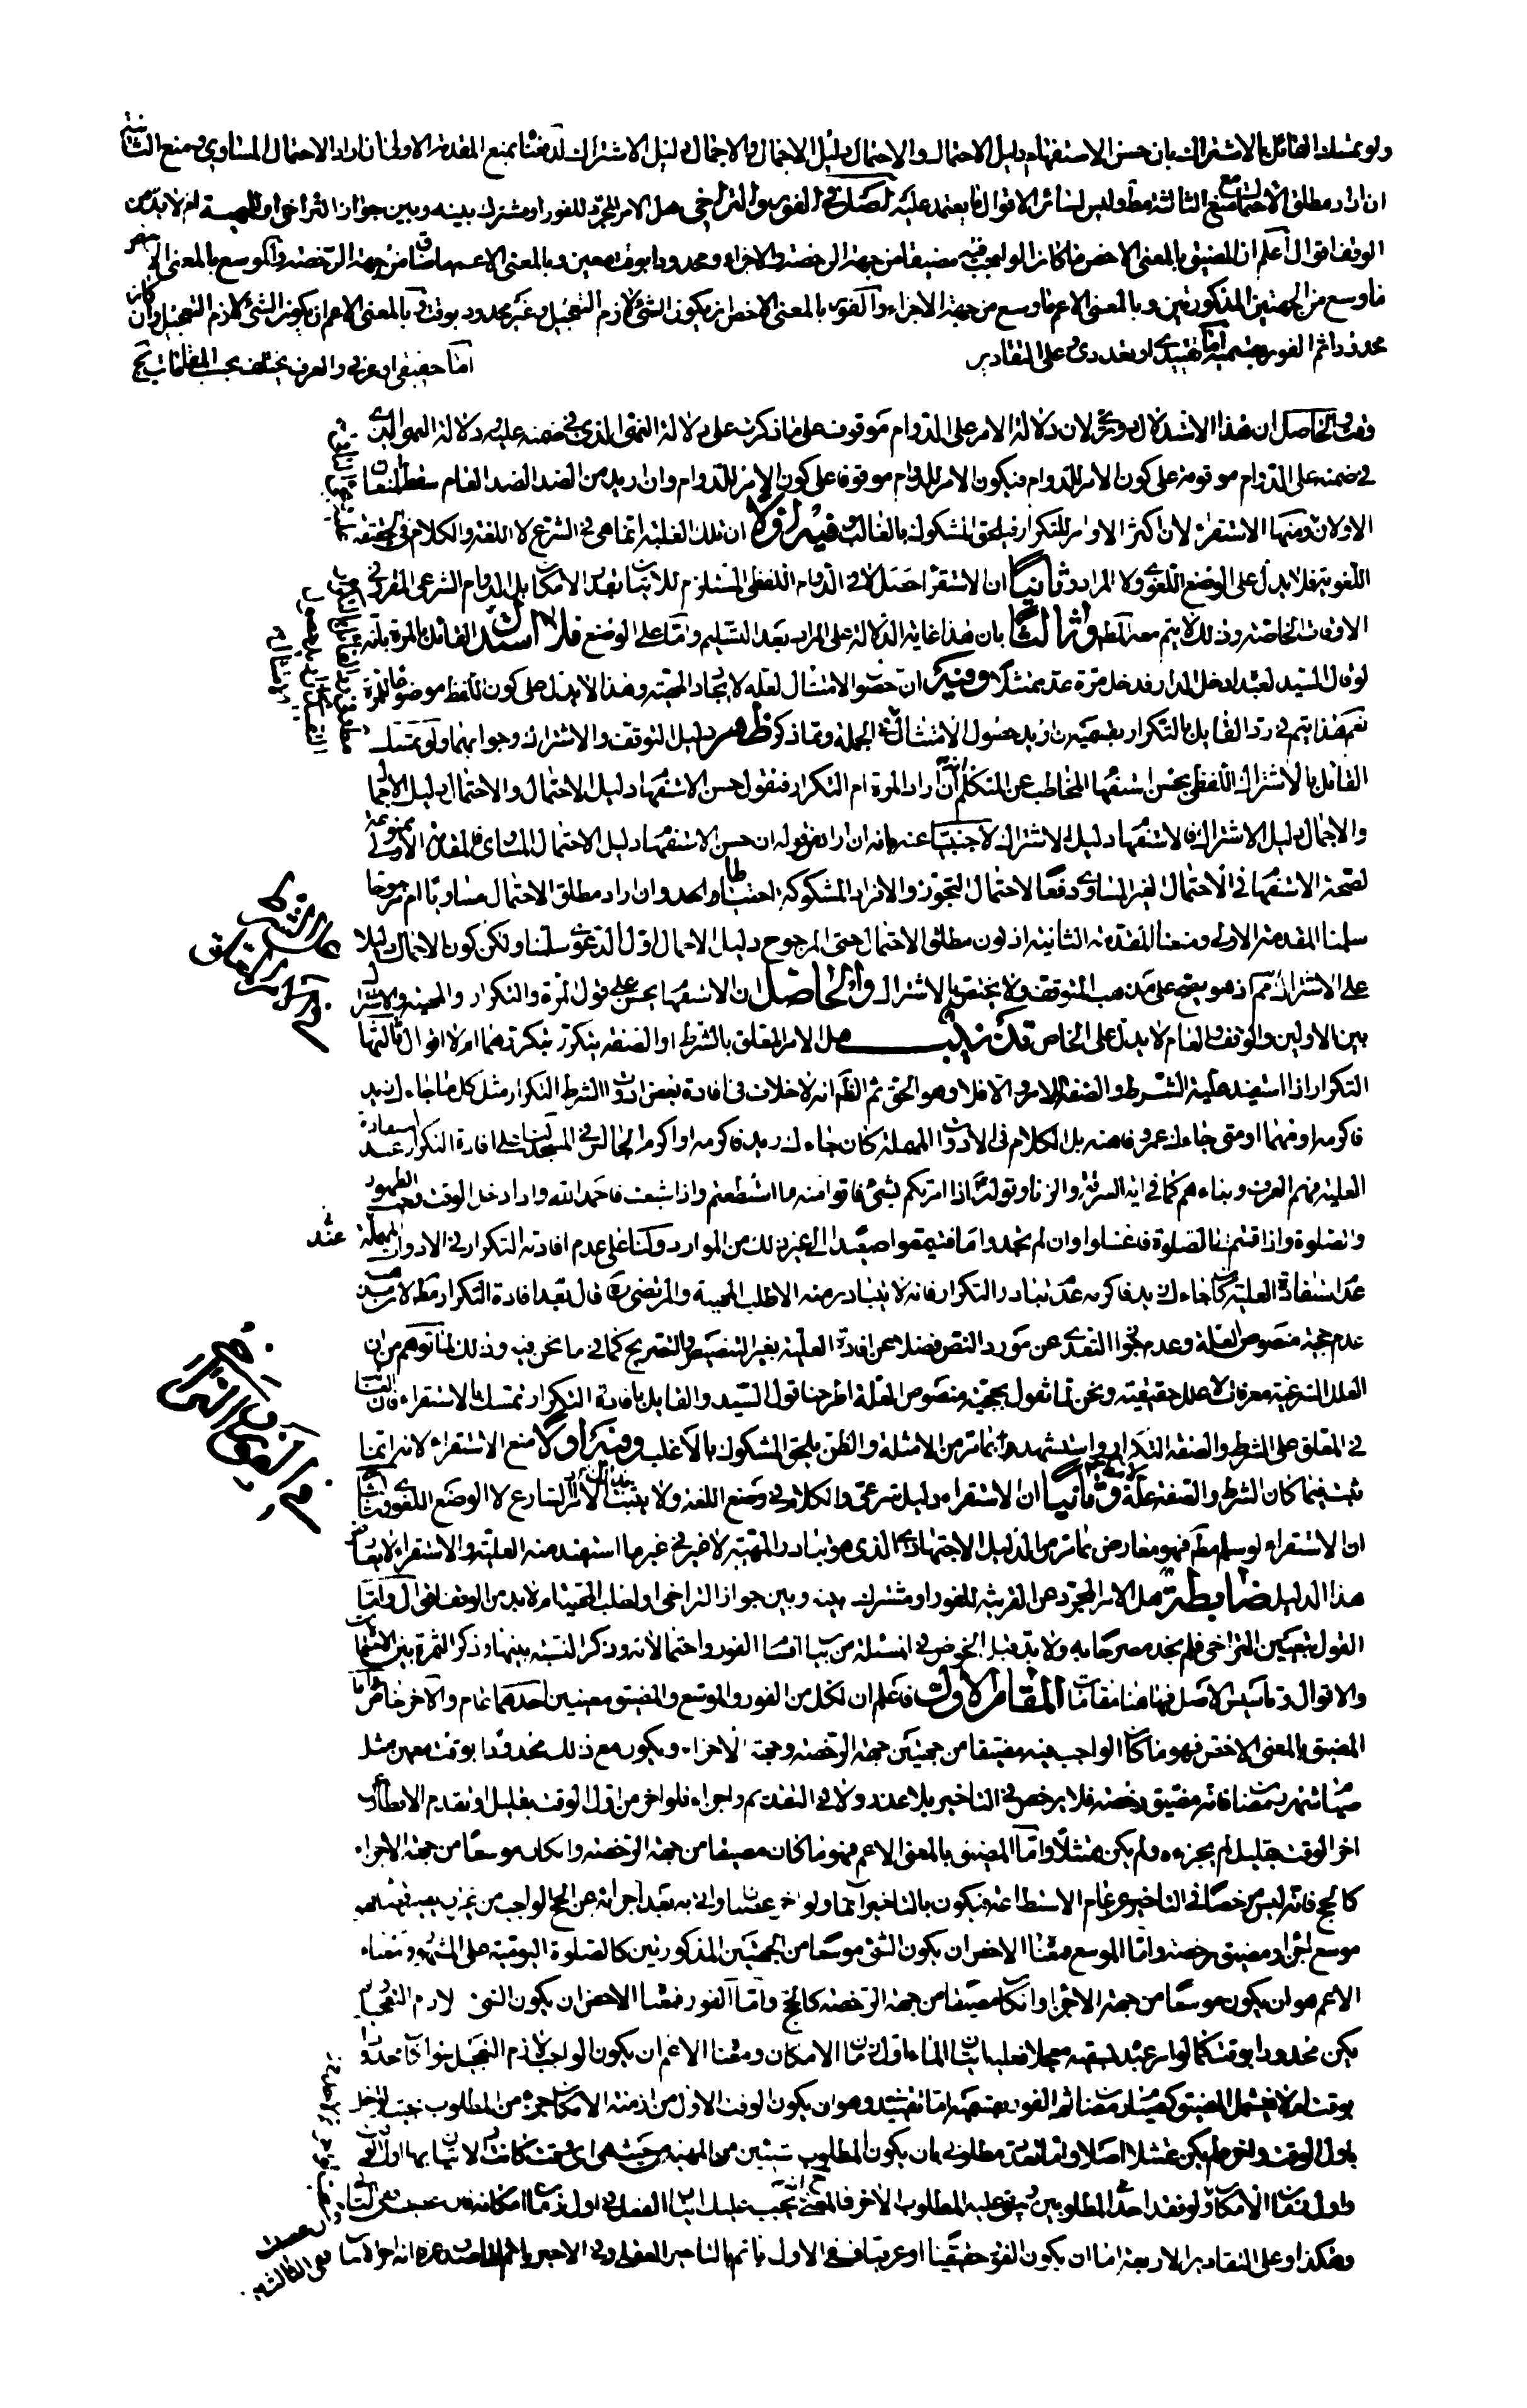 ولو تمسك القائل بالاشتراك بان حسن الاستفهام دليل الاحتمال والاحتمال دليل الاجمال والاجمال دليل الاشتراك لدفعنا بمنع المقدمة الاولى ان اراد الاحتمال المساوي ومنع الثانية
ان اراد مطلق الاحتمال مع منع الثالثة مط وليس لسائر الاقوال ما يعتمد عليه اصل في الفور والتراخي هل الامر المجرد للفور او مشترك بينه وبين جواز التراخي او للمهية ام لا بد من
الوقف اقوال اعلم ان المضيق بالمعنى الاخص ما كان الواجب فيه مضيقا من جهة الرخصة والاجزاء ومحدودا بوقت معين وبالمعنى الاعم ما ضاق من جهة الرخصة والموسع بالمعنى الاخص
ما وسع من الجهتين المذكورتين وبالمعنى الاعم ما وسع من جهة الاجزاء والفور بالمعنى الاخص ان يكون الشئ لازم التعجيل وغير محدود بوقت وبالمعنى الاعم ان يكون الشئ لازم التعجيل وان كان
محدودا ثم الفور بقسميه اما تقييدي او تعددي وعلى التقادير
اما حقيقي او عرفي والعرف يختلف بحسب المقامات
وقف والحاصل ان هذا الاستدلال دوري لان دلالة الامر على الدوام موقوف على ما ذكرت على دلالة النهي الذي في ضمنه عليه ودلالة النهي الذي
في ضمنه على الدوام موقوفة على كون الامر للدوام فيكون الامر للدوام موقوفا على كون الامر للدوام وان اريد من الضد الضد العام سقط المنعان
الاولان ومنها الاستقراء لان اكثر الاوامر للتكرار فيلحق المشكوك بالغالب وفيه اولا ان تلك الغلبة انما هي في الشرع لا اللغة والكلام في الحقيقة
اللغوية فلا يدل على الوضع اللغوي ولا المراد وثانيا ان الاستقراء حصل لا في الدوام اللفظي المستلزم للاتيان بقدر الامكان بل الدوام الشرعي المقرر في
الاوقات الخاصة وذلك لا يتم معه المط وثالثا بان هذا غاية الدلالة على المراد بعد التسليم واما على الوضع فلا استدل القائل بالمرة بانه
لو قال السيد لعبده ادخل الدار فدخل مرة عد ممتثلا وفيه ان حصول الامتثال لعله لايجاد المهية وهذا لا يدل على كون اللفظ موضوعا للمرة
نعم هذا يتم في رد القائل بالتكرار بقسميه ان اريد حصول الامتثال في الجملة ومما ذكر ظهر دليل التوقف والاشتراك وجوابهما ولو تمسك
القائل بالاشتراك اللفظي بحسن استفهام المخاطب عن المتكلم انه اراد المرة ام التكرار فنقول حسن الاستفهام دليل الاحتمال والاحتمال دليل الاجمال
والاجمال دليل الاشتراك فالاستفهام دليل الاشتراك لاجبنا عنه بانه ان اراد من قوله ان حسن الاستفهام دليل الاحتمال المساوي فالمقدمة الاولى ممنوعة
لصحة الاستفهام في الاحتمال الغير المساوي دفعا لاحتمال التجوز والافراد المشكوكة احتياطا وان اراد مطلق الاحتمال مساويا ام مرجوحا
سلمنا المقدمة الاولى ومنعنا المقدمة الثانية اذ كون مطلق الاحتمال حتى المرجوح دليل الاجمال اول الدعوى سلمنا ولكن كون الاجمال دليلا
على الاشتراك مم اذ هو يصح على مذهب المتوقف ولا يختص بالاشتراك والحاصل ان الاستفهام يحسن على قول المرة والتكرار والمهية والاشتراك
بين الاولين والوقف والعام لا يدل على الخاص تذنيب هل الامر المعلق بالشرط او الصفة يتكرر بتكررهما ام لا اقوال ثالثها
التكرار اذا استفيد علية الشرط والصفة للامر والا فلا وهو الحق ثم الظ انه لا خلاف في افادة بعض ادوات الشرط التكرار مثل كلما جاءك زيد
فاكرمه او مهما او متى جاءك عمرو فاهنه بل الكلام في الادوات المهملة كان جاءك زيد فاكرمه او اكرم الجالس في المسجد لنا على افادة التكرار عند استفادة
العلية فهم العرف وبناءهم كما في اية السرقة والزنا وقوله اذا امرتكم بشئ فاتوا منه ما استطعتم واذا شبعت فاحمد الله واذا دخل الوقت وجب الطهور
والصلوة واذا قمتم الى الصلوة فاغسلوا وان لم تجدوا ماء فتيمموا صعيدا الى غير ذلك من الموارد ولنا على عدم افادته التكرار في الادوات المهملة عند
عدم استفادة العلية كان جاءك زيد فاكرمه عدم تبادر التكرار فانه لا يتبادر منه الا طلب المهية والمرتضى قال بعدم افادة التكرار مط لان مذهبه
عدم حجية منصوص العلة وعدم جواز التعدي عن مورد النص فضلا عن افادة العلية بغير التنصيص والتصريح كما في ما نحن فيه وذلك لما توهم من ان
العلل الشرعية معرفات لا علل حقيقية ونحن لما نقول بحجية منصوص العلة اطرحنا قول السيد والقائل بافادة التكرار تمسك بالاستقراء فان الغالب
في المعلق على الشرط والصفة التكرار واستشهد بما مر من الامثلة والظن يلحق المشكوك بالاغلب وفيه اولا منع الاستقراء لانه انما
ثبت فيما كان الشرط والصفة علة وثانيا ان الاستقراء دليل شرعي والكلام في وضع اللغة ولا يثبت الا امر الشارع لا الوضع اللغوي وثالثا
ان الاستقراء لو سلم مط فهو معارض بما مر من الدليل الاجتهادي الذي هو تبادر المهية لا غير في غير ما استفيد منه العلية والاستقراء لا يعارض
هذا الدليل ضابطة هل الامر المجرد عن القرينة للفور او مشترك بينه وبين جواز التراخي او لطلب المهية ام لا بد من الوقف اقوال واما
القول بتعيين التراخي فلم نجد مصرحا به ولا بد قبل الخوض في المسئلة من بيان اقسام الفور واحتمالاته وذكر النسبة بينها وذكر الثمرة بين الاحتمالات
والاقوال وتاسيس الاصل فيها فهنا مقامات المقام الاول فاعلم ان لكل من الفور والموسع والمضيق معنيين احدهما عام والآخر خاص واما
المضيق بالمعنى الاخص فهو ما كان الواجب فيه مضيقا من جهتين جهة الرخصة وجهة الاجزاء ويكون مع ذلك محدودا بوقت معين مثل
صيام شهر رمضان فانه مضيق رخصة فلا يرخص في التاخير بلا عذر ولا في التقديم واجزاء فلو اخر من اول الوقت بقليل او تقدم الافطار
اخر الوقت بقليل لم يجزه ولم يكن ممتثلا واما المضيق بالمعنى الاعم فهو ما كان مضيقا من جهة الرخصة وان كان موسعا من جهة الاجزاء
كالحج فانه ليس مرخصا في التاخير عن عام الاستطاعة فيكون بالتاخير آثما ولو اخر عصيانا واتى به بعد اجزائه عن الحج الواجب من
موسع اجزاء ومضيق رخصة واما الموسع فمعناه الاخص ان يكون الشئ موسعا من الجهتين المذكورتين كالصلوة اليومية على المشهور ومعناه
الاعم هو ان يكون موسعا من جهة الاجزاء وان كان مضيقا من جهة الرخصة كالحج واما الفور فمعناه الاخص ان يكون الشئ لازم التعجيل
يكن محدودا بوقت كما لو امر عبده بسقيه معجلا فعليه اتيان الماء اول زمان الامكان ومعناه الاعم ان يكون الواجب لازم التعجيل سواء كان محدودا
بوقت ام لا فيشمل المضيق كصيام رمضان ثم الفور بقسميه اما تقييدي وهو ان يكون الوقت الاول من ازمنة الامكان جزء من المطلوب
باول الوقت واخر لم يكن ممتثلا اصلا واما تعدد مطلوبي بان يكون المطلوب شيئين من المهية من حيث هي اي وقت كانت والاتيان بها اول الوقت
واول زمان الامكان ولو فقد احد المطلوبين بقي عليه المطلوب الآخر فالمعنى انه يجب عليك اتيان الفعل في اول زمان امكانه
وهكذا وعلى التقادير الاربعة اما ان يكون الفور حقيقيا او عرفيا ففي الاول ياثم بالتاخير العقلي وفي الاخير